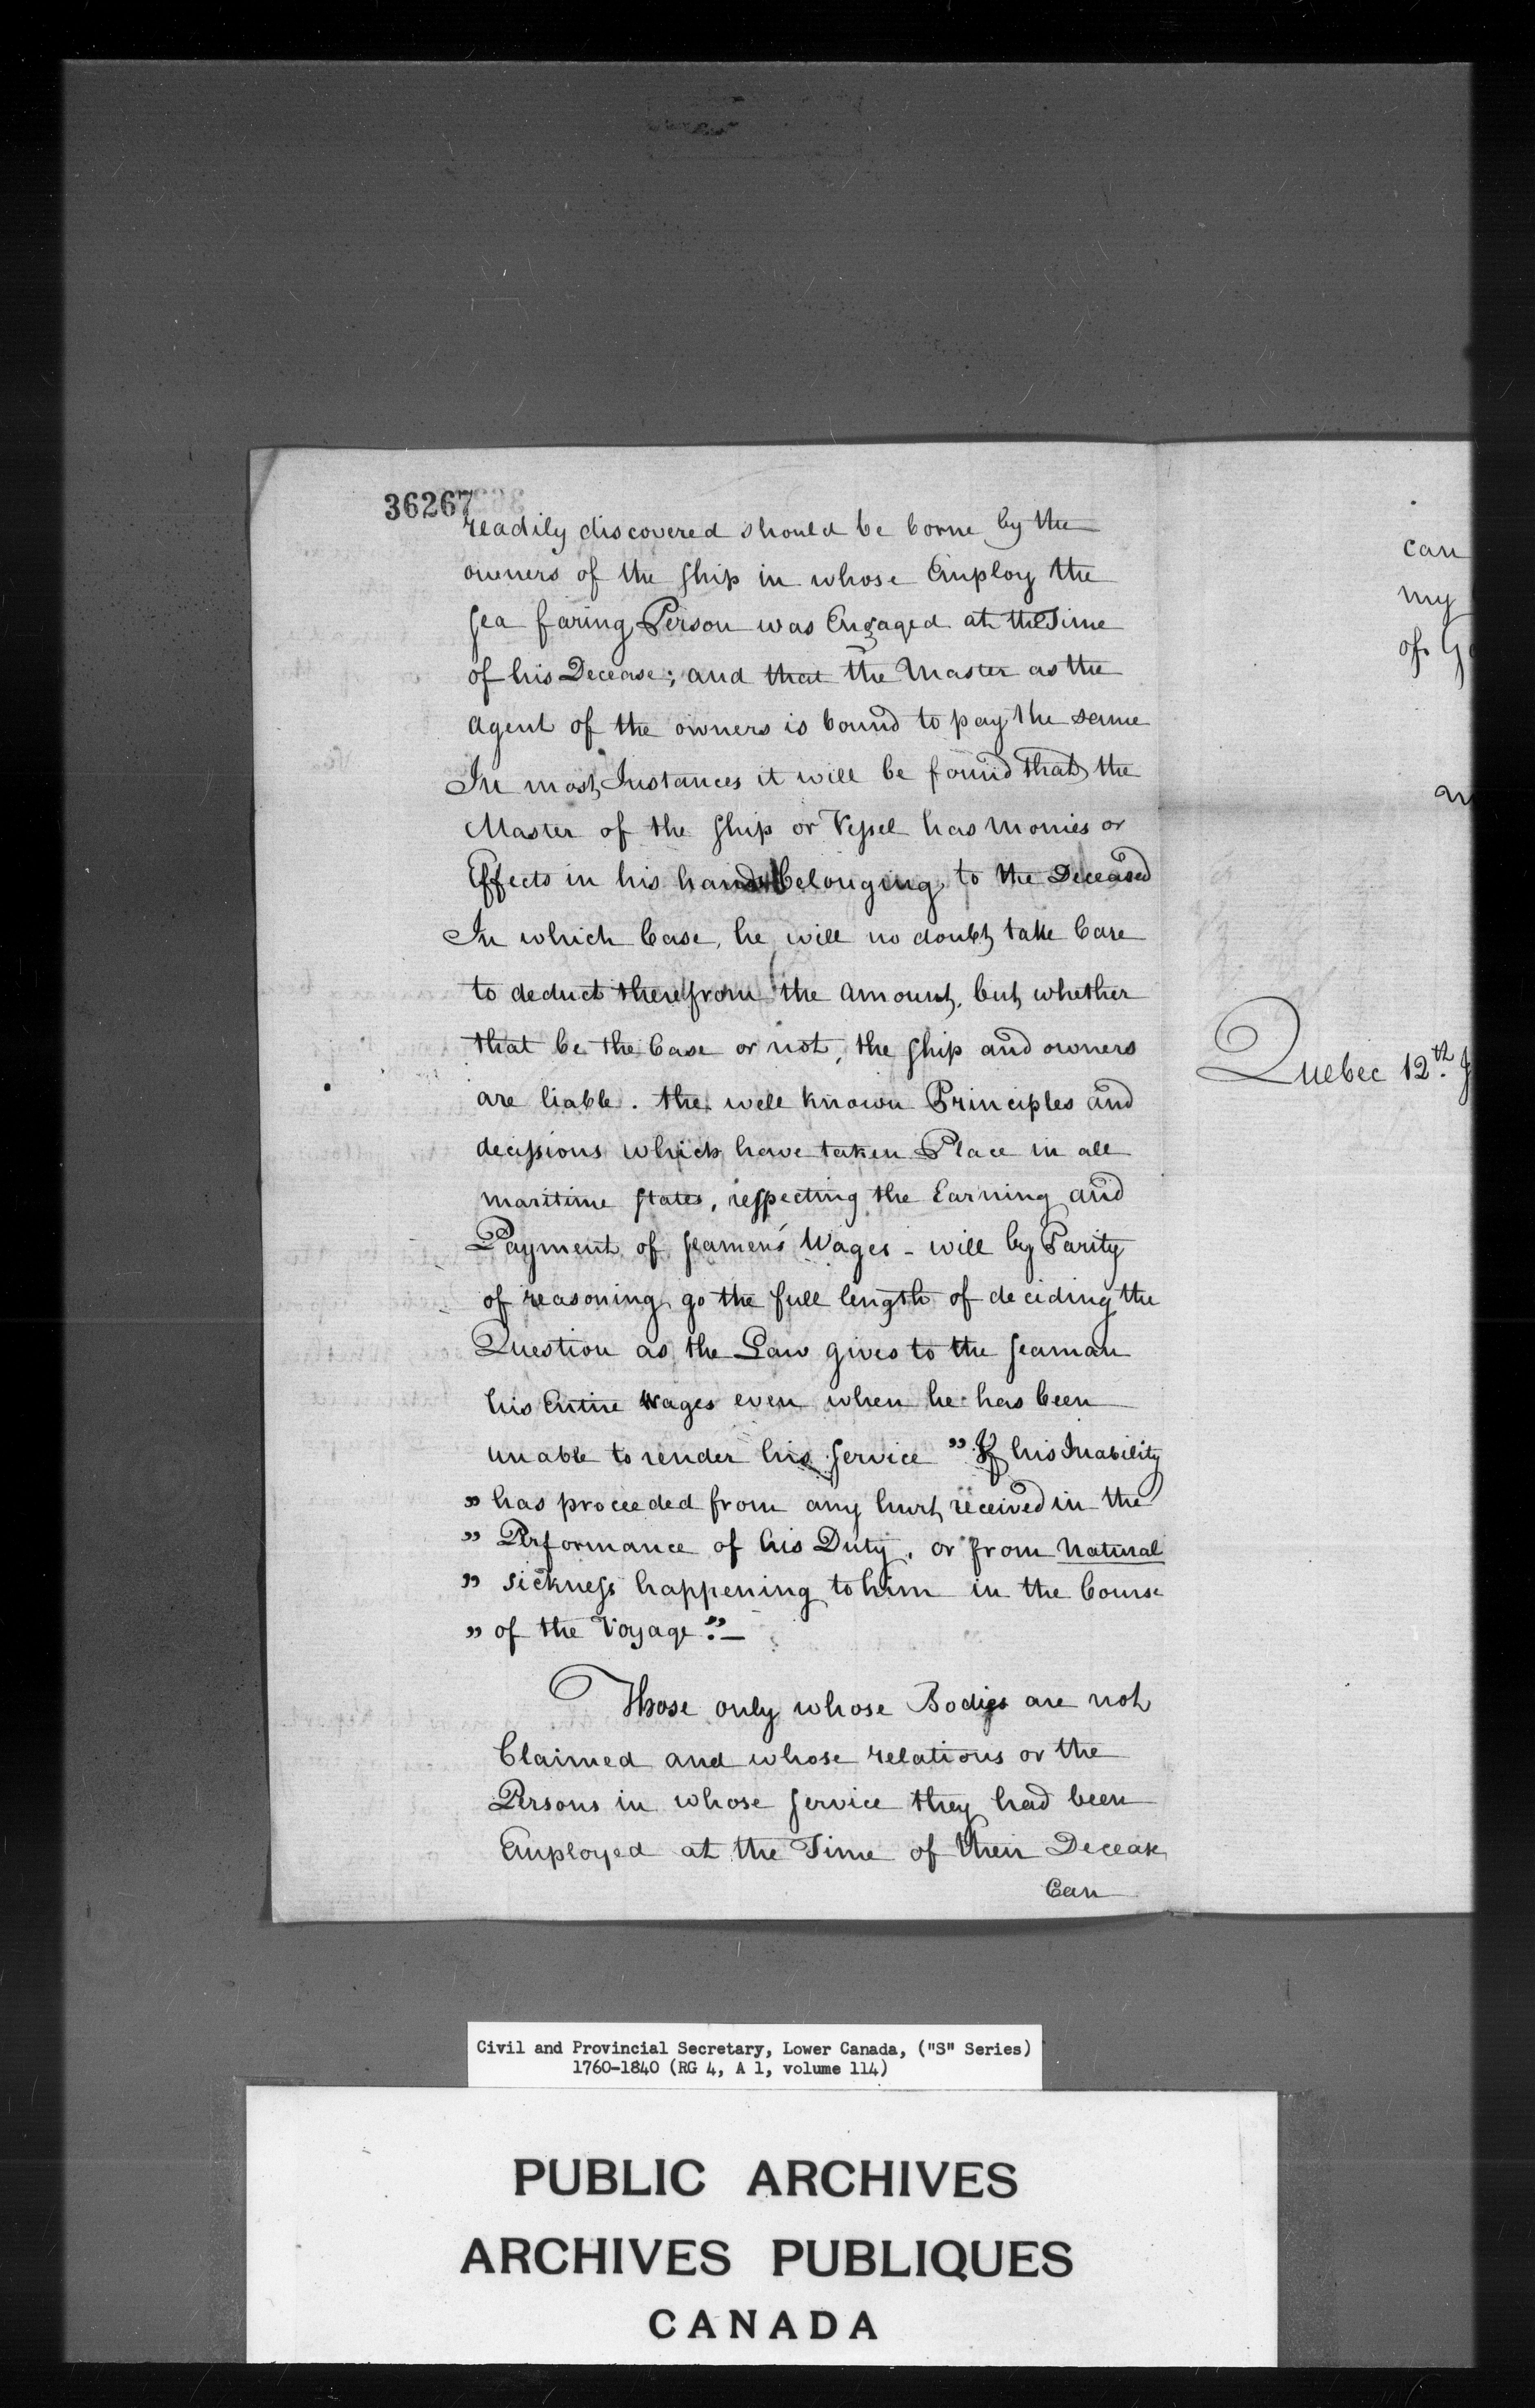 36267
readily discovered should be borne by the
owners of the Ship in whose Employ the
Sea faring Person was Engaged at the Time
of his Decease; and that the Master as the
Agent of the owners is bound to pay the same
In most Instances it will be found that the
Master of the Ship or Vessel has Monies or
Effects in his hands belonging to the Deceased
In which Case, he will no doubt take Care
to deduct therefrom the Amount, but whether
that be the Case or not, the Ship and owners
are liable. the well known Principles and
decissions which have taken Place in all
maritime States, respecting the Earning and
Payment of Seamen's Wages - will by Parity
of reasoning go the full length of deciding the
Question as the Law gives to the Seaman
his Entire Wages even when he has been
unable to render his Service " If his Inability
" has proceeded from any hurt received in the
" Performance of his Duty, or from Natural
" Sickness happening to him in the Course
" of the Voyage." —
Those only whose Bodies are not
Claimed and whose relations or the
Persons in whose Service they had been
Employed at the Time of their Decease
Can
can
my
of
Quebec 12th. J
Civil and Provincial Secretary, Lower Canada, ("S" Series)
1760-1840 (RG 4, A 1, volume 114)
PUBLIC ARCHIVES
ARCHIVES PUBLIQUES
CANADA